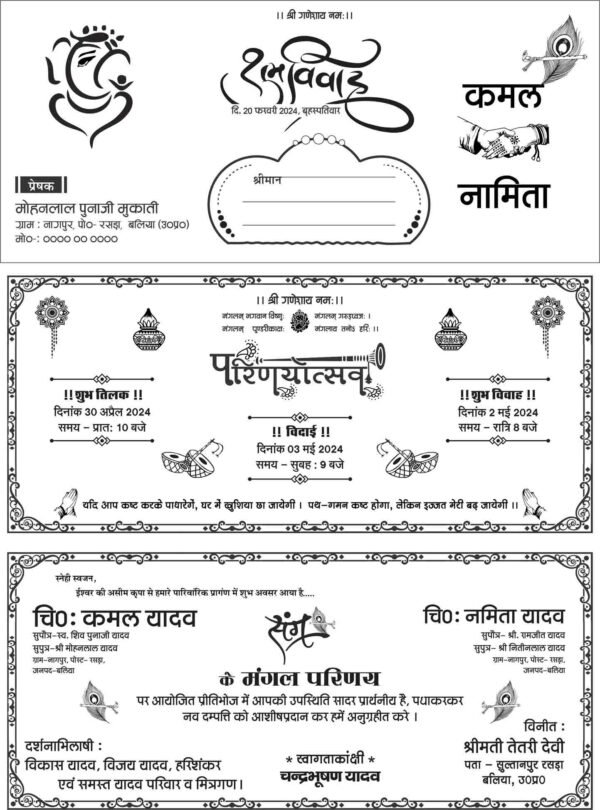 ।। श्री गणेशाय नम:।।
शुभ विवाह
दि. 20 फरवरी 2024, बृहस्पतिवार
कमल
नामिता
श्रीमान
प्रेषक
मोहनलाल पुनाजी मुकाती
ग्राम : नागपुर, पो०- रसड़ा, बलिया (उ०प्र०)
मो०-: ०००० ०० ००००
।। श्री गणेशाय नम:।।
मंगलम् भगवान विष्णु: मंगलम् गरुड़ध्वज: ।
मंगलम् पुण्डरीकाक्ष: मंगलाय तनोऽ हरि: ।।
परिणयोत्सव
!! शुभ तिलक !!
दिनांक 30 अप्रेल 2024
समय – प्रात: 10 बजे
!! विदाई !!
दिनांक 03 मई 2024
समय – सुबह : 9 बजे
!! शुभ विवाह !!
दिनांक 2 मई 2024
समय – रात्रि 8 बजे
यदि आप कष्ट करके पाधारेगें, घर में खुशिया छा जायेगी । पथ-गमन कष्ट होगा, लेकिन इज्जत मेरी बढ़ जायेगी ।।
स्नेही स्वजन,
ईश्वर की असीम कृपा से हमारे पारिवारिक प्रागंण में शुभ अवसर आया है.....
चि०: कमल यादव
सुपौत्र-स्व. शिव पुनाजी यादव
सुपुत्र-श्री मोहनलाल यादव
ग्राम-नागपुर, पोस्ट- रसड़ा,
जनपद-बलिया
संग
चि०: नमिता यादव
सुपौत्र- श्री. रामजीत यादव
सुपुत्र- श्री नितीनलाल यादव
ग्राम-नागपुर, पोस्ट- रसड़ा,
जनपद-बलिया
के मंगल परिणय
पर आयोजित प्रीतिभोज में आपकी उपस्थिति सादर प्रार्थनीय है, पधाकरकर
नव दम्पत्ति को आशीषप्रदान कर हमें अनुग्रहीत करे ।
दर्शनाभिलाषी :
विकास यादव, विजय यादव, हरिशंकर
एवं समस्त यादव परिवार व मित्रगण।
* स्वागताकांक्षी *
चन्द्रभूषण यादव
विनीत :
श्रीमती तेतरी देवी
पता – सुल्तानपुर रसड़ा
बलिया, उ०प्र०